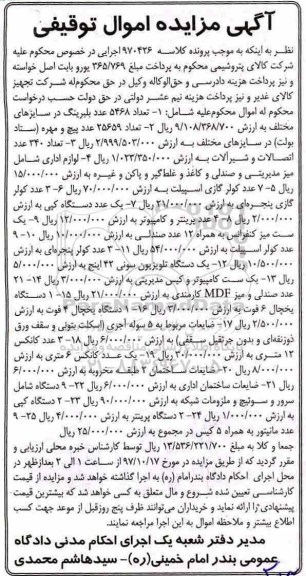 آگهی مزایده اموال توقیفی
نظر به اینکه به موجب پرونده کلاسه ۹۷۰۴۲۶ اجرایی در خصوص محکوم علیه
شرکت کالای پتروشیمی محکوم به پرداخت مبلغ ۳۶۵/۷۶۹ یورو بابت اصل خواسته
و نیز پرداخت هزینه دادرسی و حق‌الوکاله وکیل در حق محکوم‌له شرکت تجهیز
کالای غدیر و نیز پرداخت هزینه نیم عشر دولتی در حق دولت حسب درخواست
محکوم له اموال محکوم‌علیه شامل: ۱- تعداد ۵۴۶۸ عدد بلبرینگ در سایزهای
مختلف به ارزش ۹/۱۰۸/۳۶۸/۷۰۰ ریال ۲- تعداد ۲۵۶۵۹ عدد پیچ و مهره (ستاد
بولت) در سایزهای مختلف به ارزش ۲/۹۹۹/۵۰۳/۰۰۰ ریال ۳- تعداد ۳۴۰ عدد
اتصالات و شیرآلات به ارزش ۱/۰۲۳/۳۵۰/۰۰۰ ریال ۴- لوازم اداری شامل
میز مدیریتی و صندلی و کاغذ و غلطاگیر و پاکن و غیره به ارزش ۱۵/۰۰۰/۰۰۰
ریال ۵- ۷ عدد کولر گازی اسپیلت به ارزش ۷۰/۰۰۰/۰۰۰ ریال ۶- ۳ عدد کولر
گازی پنجره‌ای به ارزش ۲۱/۰۰۰/۰۰۰ ریال ۷- یک عدد دستگاه کپی به ارزش
۲/۰۰۰/۰۰۰ ریال ۸- ۴ عدد پرینتر و کامپیوتر به ارزش ۱۲/۰۰۰/۰۰۰ ریال ۹- یک
ست میز کنفرانس به همراه ۱۲ عدد صندلی به ارزش ۱۰/۰۰۰/۰۰۰ ریال ۱۰- ۹
عدد کولر اسپلت به ارزش ۵۴/۰۰۰/۰۰۰ ریال ۱۱- ۳ عدد کولر پنجره‌ای به ارزش
۱۰/۵۰۰/۰۰۰ ریال ۱۲- یک دستگاه تلویزیون سونی ۴۲ اینچ به ارزش ۵/۰۰۰/۰۰۰
ریال ۱۳- یک ست کامپیوتر و کیس مدیریتی به ارزش ۳/۰۰۰/۰۰۰ ریال ۱۴- ۲۱
عدد صندلی و میز MDF کارمندی به ارزش ۲۱/۰۰۰/۰۰۰ ریال ۱۵- ۱ دستگاه
یخچال ۶ فوت به ارزش ۳/۰۰۰/۰۰۰ ریال ۱۶- ۱ دستگاه یخچال ۴ فوت به ارزش
۲/۵۰۰/۰۰۰ ریال ۱۷- ضایعات مربوط به ۵ سوله آجری (اسکلت بتونی و سقف ورق
ذوزنقه‌ای و بدون جرثقیل سقفی) به ارزش ۶/۰۰۰/۰۰۰ ریال ۱۸- ۳ عدد کانکس
۱۲ متری به ارزش ۳۰/۰۰۰/۰۰۰ ریال ۱۹- یک عدد کانکس ۶ متری به ارزش
۸/۰۰۰/۰۰۰ ریال ۲۰- ضایعات ساختمان ۲ طبقه مخروبه به ارزش ۶/۰۰۰/۰۰۰
ریال ۲۱- ضایعات ساختمان اداری به ارزش ۶/۰۰۰/۰۰۰ ریال ۲۲- ۹ دستگاه شامل
سرور و سوئیچ و ملزومات شبکه به ارزش ۹۰/۰۰۰/۰۰۰ ریال ۲۳- ۲ دستگاه کپی
به ارزش ۱/۰۰۰/۰۰۰ ریال ۲۴- ۲ دستگاه پرینتر به ارزش ۴/۰۰۰/۰۰۰ ریال ۲۵- ۹
عدد مانیتور به همراه ۵ کیس در مجموع به ارزش ۲۵/۰۰۰/۰۰۰ ریال
جمعا و کلا به مبلغ ۱۳/۵۳۶/۲۲۱/۷۰۰ ریال توسط کارشناس خبره محلی ارزیابی و
مقرر گردید که از طریق مزایده در مورخ ۹۷/۱۰/۱۷ از ساعت ۱ الی ۲ بعدازظهر در
محل اجرای احکام دادگاه بندرامام (ره) به اجرا گذاشته خواهد شد و مزایده از قیمت
کارشناسی تعیین شده شروع و مال متعلق به کسی خواهد شد که بیشترین قیمت
پیشنهادی را ارائه نماید و خریداران می‌توانند ظرف پنج روز قبل از موعد جهت کسب
اطلاع بیشتر و ملاحظه اموال به این اجرا مراجعه نمایند.
مدیر دفتر شعبه یک اجرای احکام مدنی دادگاه
عمومی بندر امام خمینی(ره)- سیدهاشم محمدی